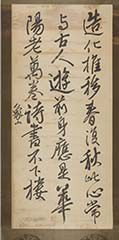 造化推移春復秋此心常
与古人遊前身應是華
陽老萬卷詩書不下樓